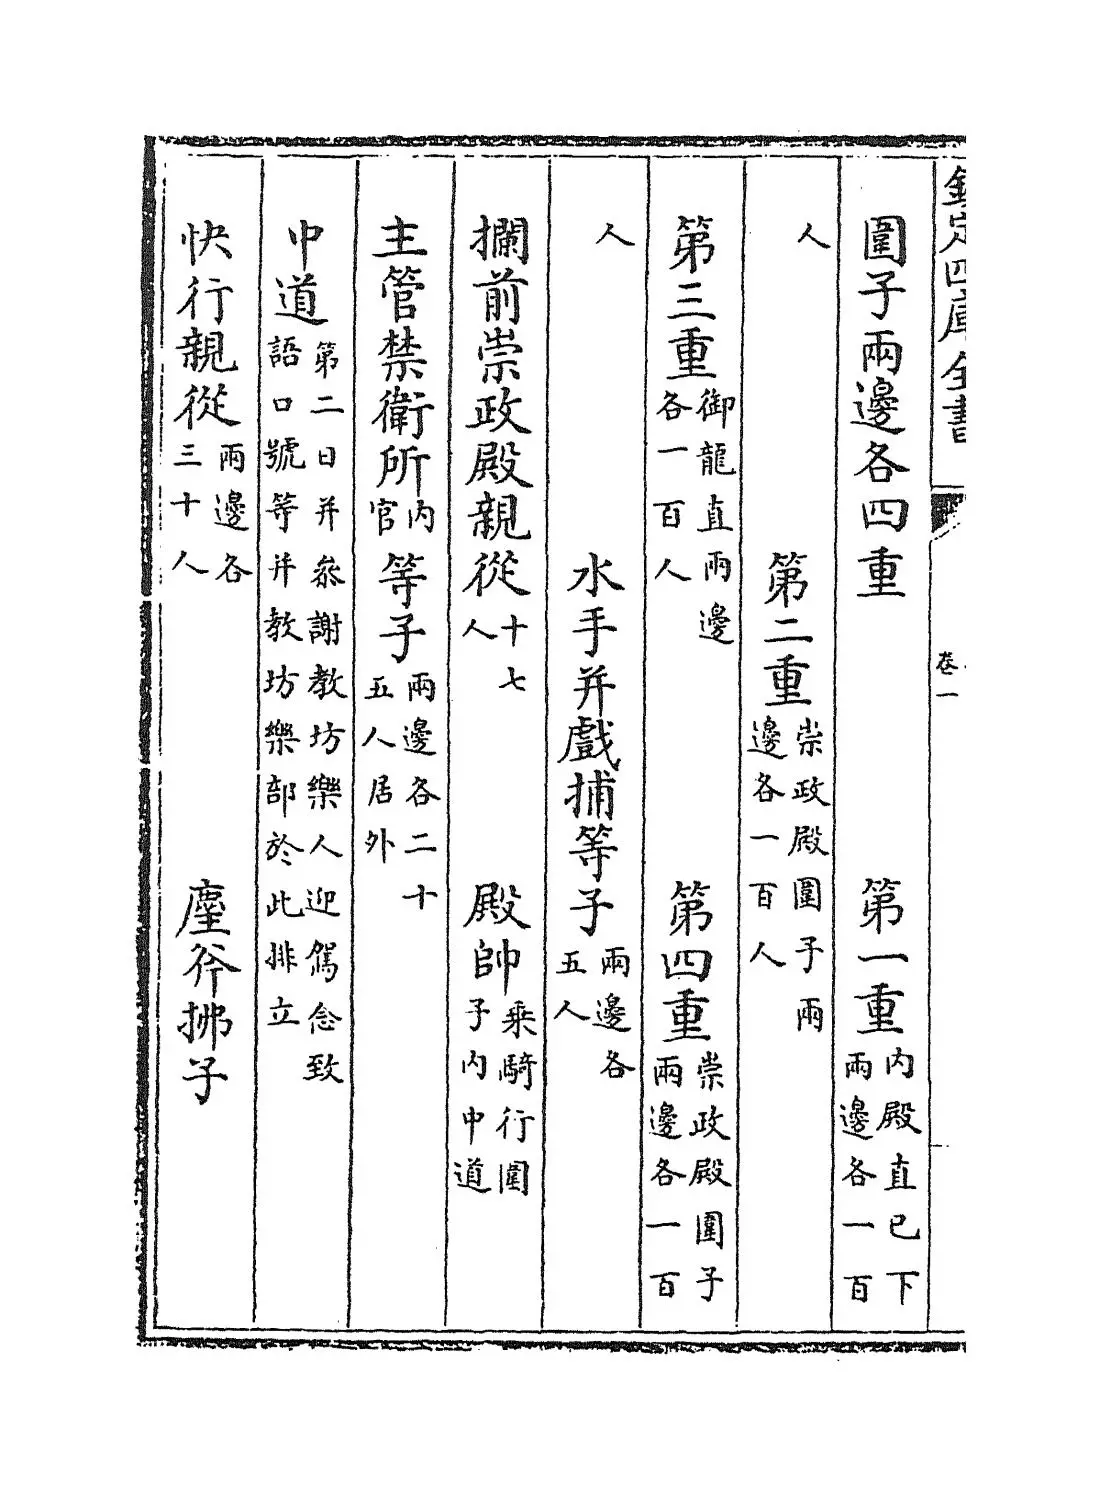 欽定四庫全書
卷一
圍子兩邊各四重　第一重內殿直已下兩邊各一百
人　第二重崇政殿圍子兩邊各一百人
第三重御龍直兩邊各一百人　第四重崇政殿圍子兩邊各一百
人　水手并戲捕等子兩邊各五人
攔前崇政殿親從十七人　殿帥乘騎行圍子內中道
主管禁衛所內官等子兩邊各二十五人居外
中道第二日并叅謝教坊樂人迎駕念致語口號等并教坊樂部於此排立
快行親從兩邊各三十人　麈斧拂子